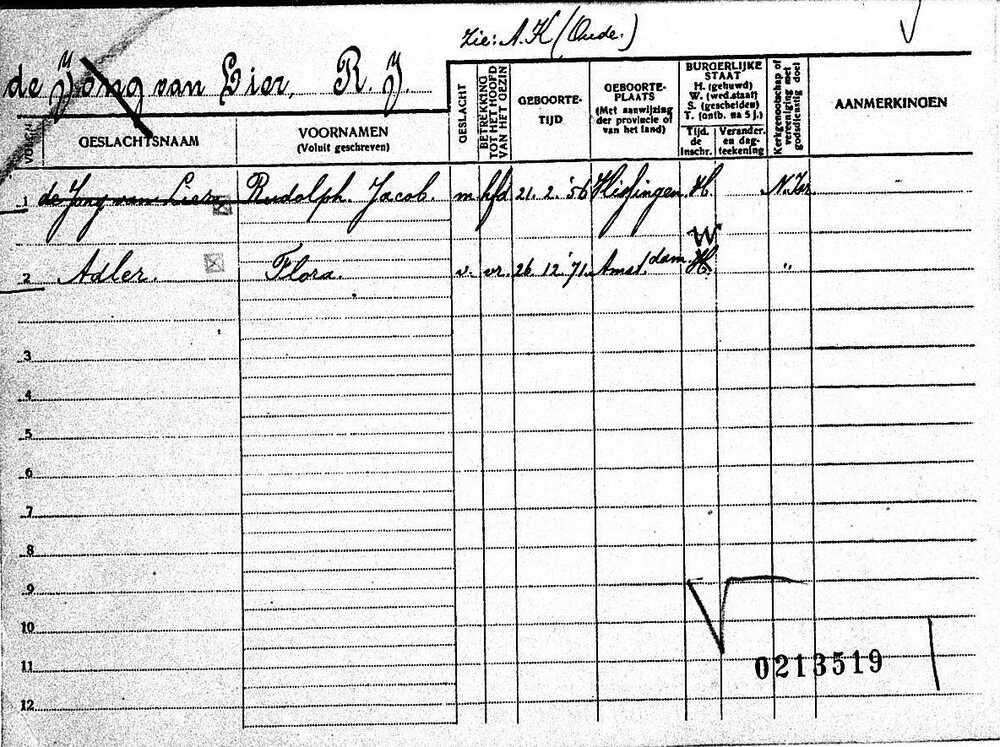 Zie: A.K (Oude.)
de Jong van Lier, R. J.
VOLGNR.
GESLACHTSNAAM
VOORNAMEN
(Voluit geschreven)
GESLACHT
BETREKKING TOT HET HOOFD VAN HET GEZIN
GEBOORTE-
TIJD
GEBOORTE-
PLAATS
(Met aanwijzing
der provincie of
van het land)
BURGERLIJKE
STAAT
H. (gehuwd)
W. (wed.staat)
S. (gescheiden)
T. (ontb. na 5 j.)
Tijd.
de
inschr.
Verander.
en dag-
teekening
Kerkgenootschap of
vereeniging met
godsdienstig doel
AANMERKINGEN
1 de Jong van Lier Rudolph Jacob. m hfd 21. 2. '56 Vlissingen H. N.Isr.
W
2 Adler. Flora. v. vr. 26. 12. '71. Amst.dam. H. "
3
4
5
6
7
8
9
10
11
12
0213519